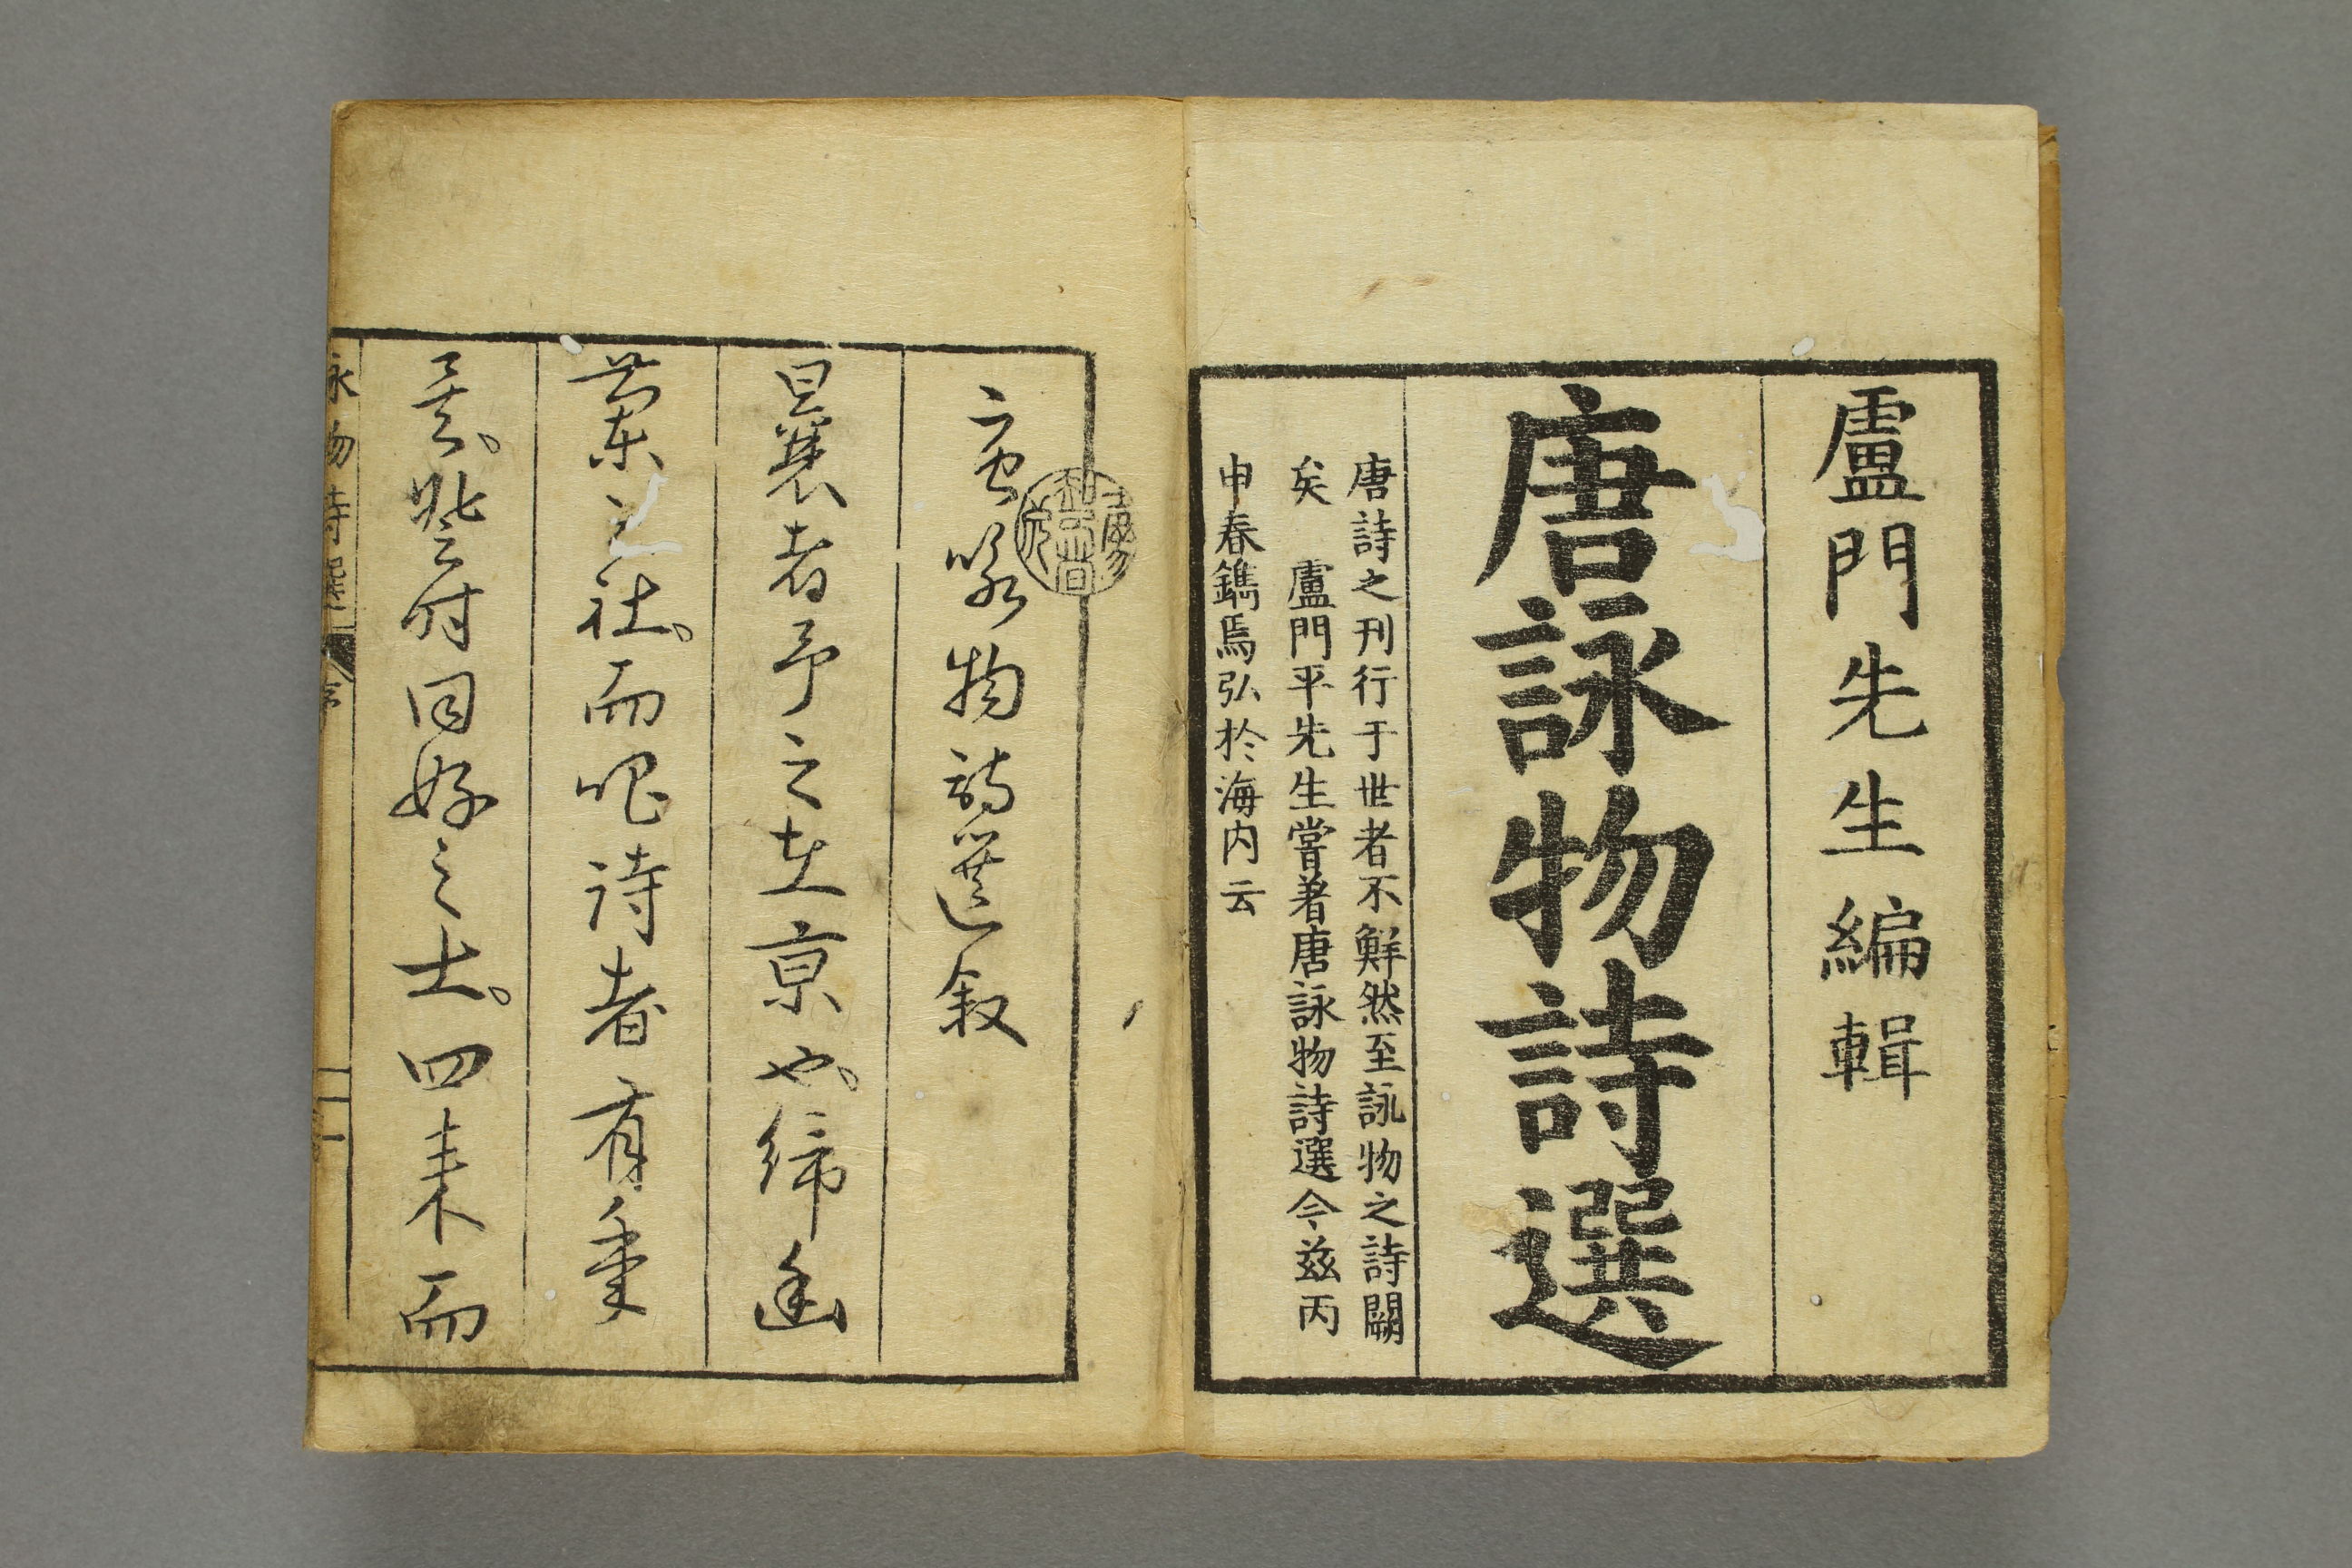 盧門先生編輯
唐詠物詩選
唐詩之刊行于世者不鮮然至詠物之詩闕
矣　盧門平先生嘗著唐詠物詩選今兹丙
申春鐫焉弘於海内云
唐咏物詩選叙
曩者予之在京也締幽
蘭之社而唱詩者有年
同好之士四来而
詠物詩選 序 一